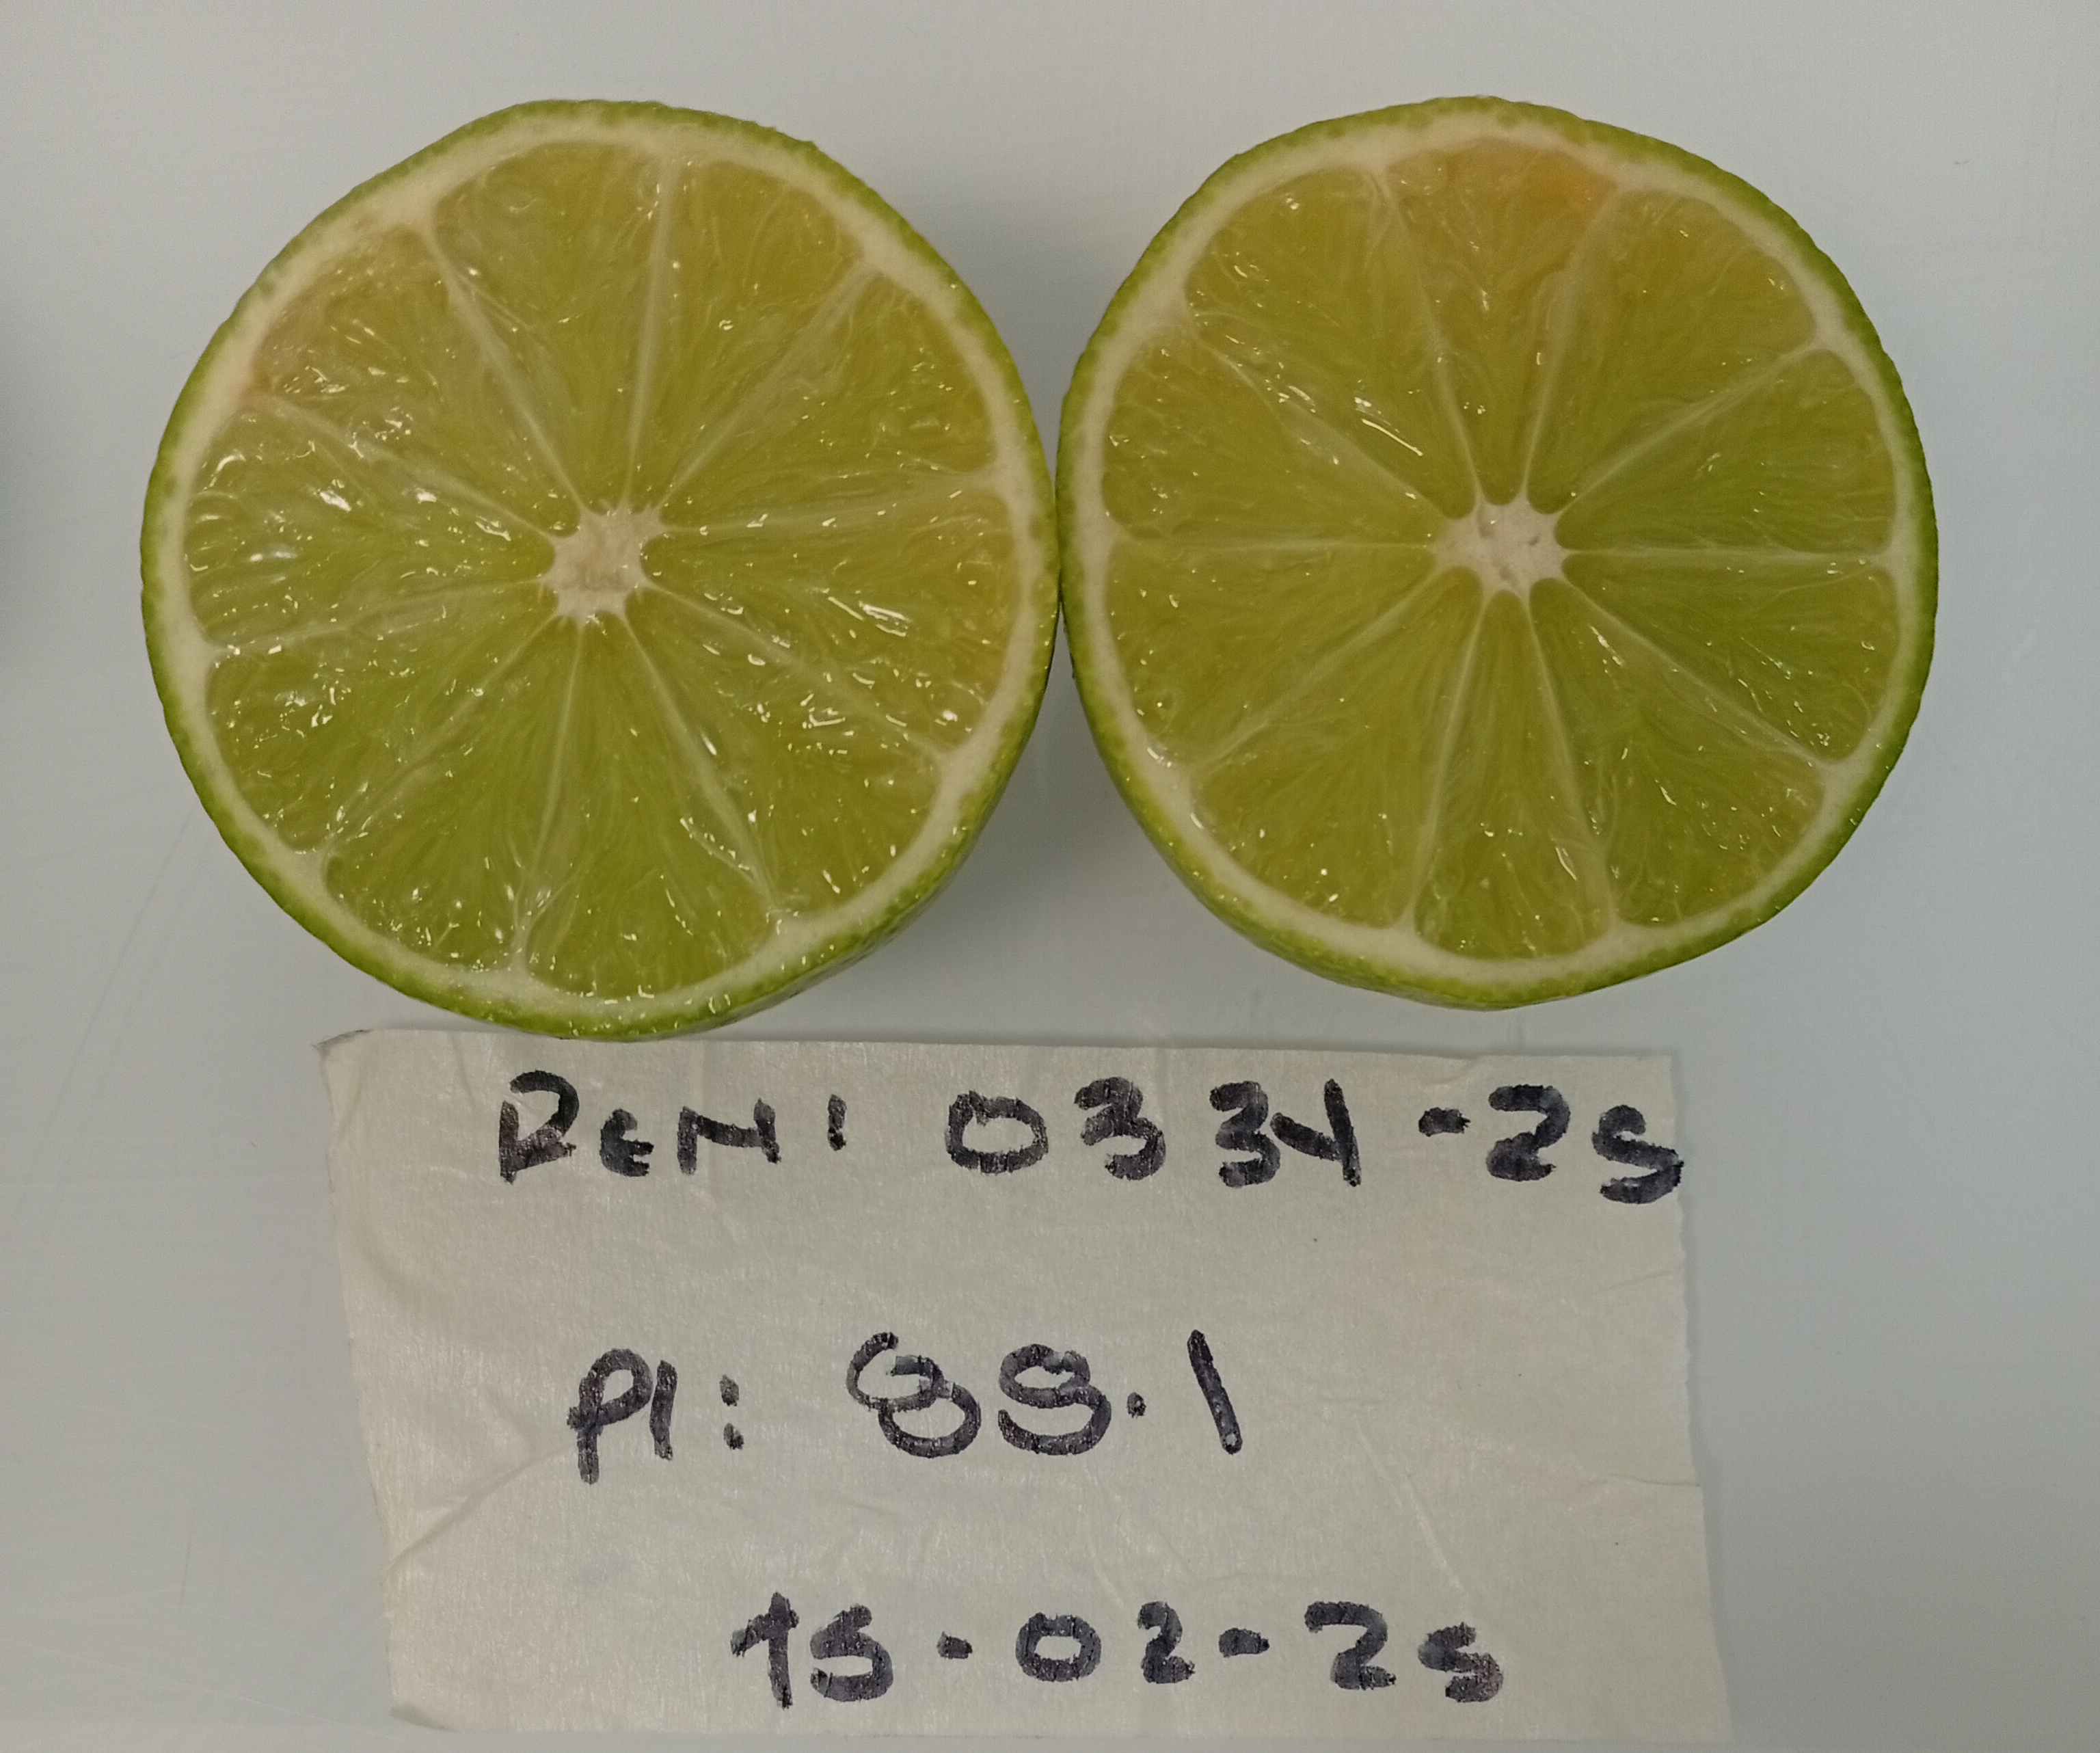 REM: 0334-25
PI: 88.1
15-02-25